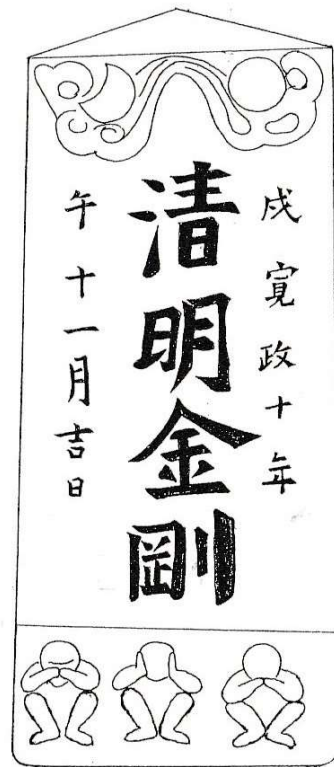 戌寛政十年
清明金剛
午十一月吉日